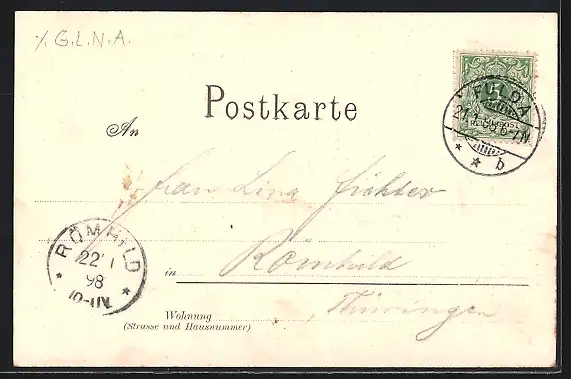 % G.L.N.A.
Postkarte
An
Frau Lina Fichter
in Römhild
Wohnung
(Strasse und Hausnummer)
Thüringen
FULDA
21.1.98 6-7N
* * b
RÖMHILD
22 1
98
10-11V.
* *
5